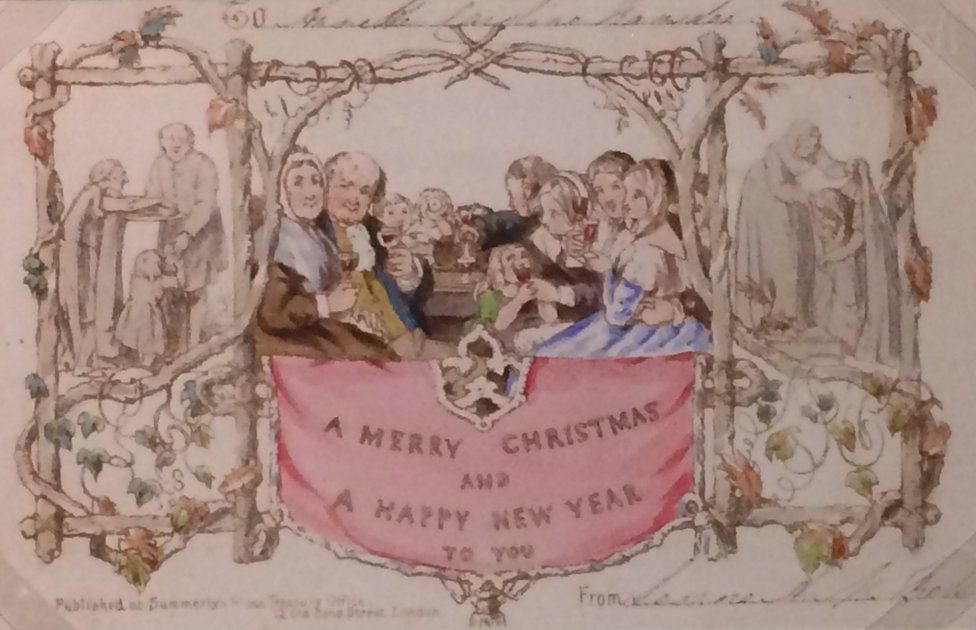 To
A MERRY CHRISTMAS
AND
A HAPPY NEW YEAR
TO YOU
Published at Summerly's Home Treasury Office
12 Old Bond Street London
From